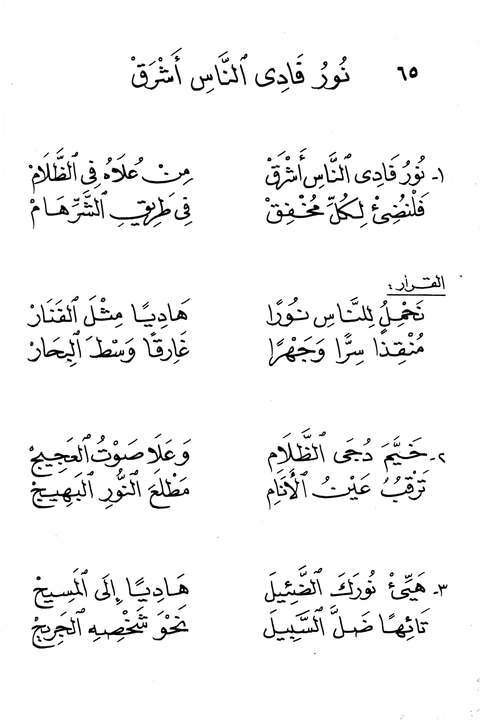 ٦٥ نُورُ فَادِي ٱلنَّاسِ أَشْرَقْ
١- نُورُ فَادِي ٱلنَّاسِ أَشْرَقْ مِنْ عُلَاهُ فِي ٱلظَّلَامْ
فَلْنُضِئْ لِكُلِّ مُخْفِقْ فِي طَرِيقِ ٱلشَّرِّ هَامْ
القرار:
نَحْمِلُ لِلنَّاسِ نُورًا هَادِيًا مِثْلَ ٱلفَنَارْ
مُنْقِذًا سِرًّا وَجَهْرًا غَارِقًا وَسْطَ ٱلبِحَارْ
٢- خَيَّمَ دُجَى ٱلظَّلَامِ وَعَلَا صَوْتُ ٱلعَجِيجْ
تَرْقُبُ عَيْنُ ٱلأَنَامِ مَطْلَعَ ٱلنُّورِ ٱلبَهِيجْ
٣- هَيِّئْ نُورَكَ ٱلضَّئِيلَ هَادِيًا إِلَى ٱلمَسِيحْ
تَائِهًا ضَلَّ ٱلسَّبِيلَ نَحْوَ شَخْصِهِ ٱلجَرِيحْ